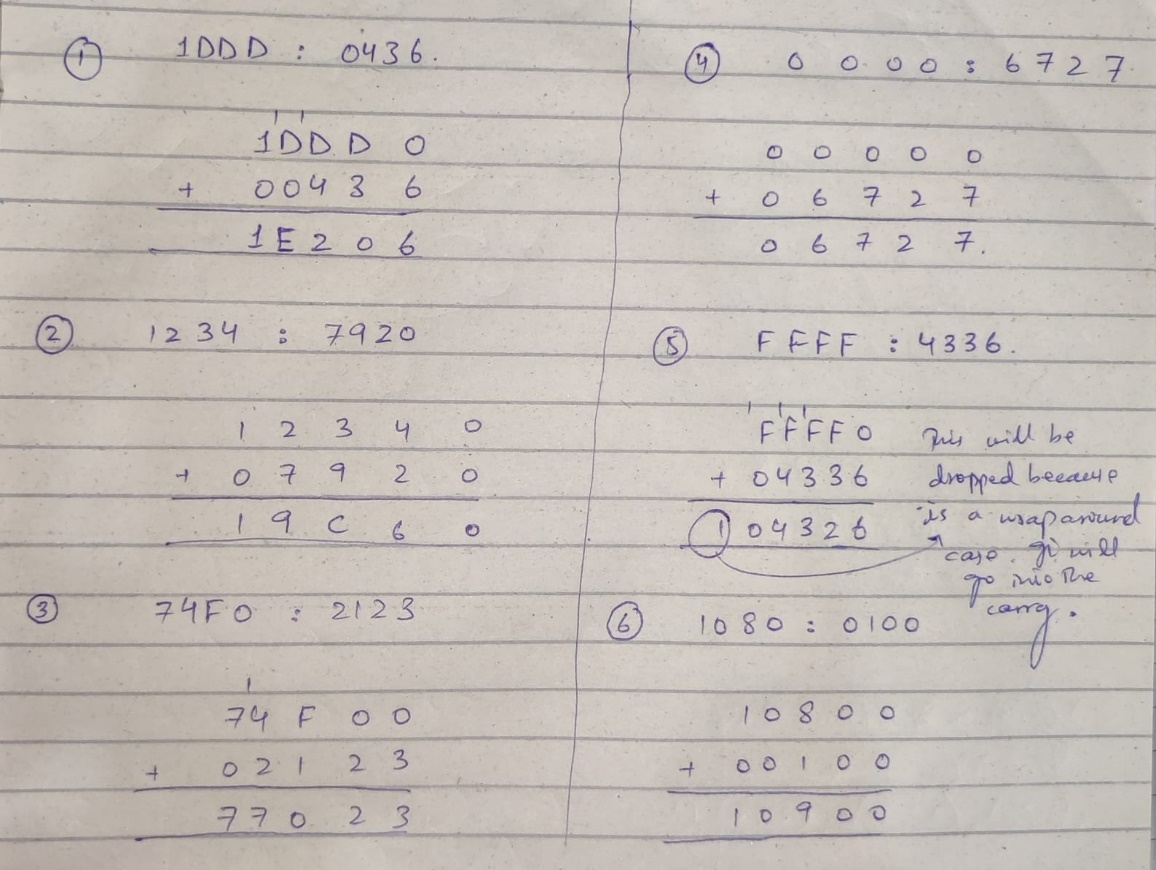 ① 1DDD : 0436.
1 1
1DDD 0
+ 0043 6
1E20 6
② 1234 : 7920
1 2 3 4 0
+ 0 7 9 2 0
1 9 C 6 0
③ 74F0 : 2123
1
74 F 0 0
+ 0 2 1 2 3
7 7 0 2 3
④ 0 0.0 0 : 6 7 2 7
0 0 0 0 0
+ 0 6 7 2 7
0 6 7 2 7.
⑤ F F F F : 4336.
1 1 1
FFFF0
+ 04336
1 04326
This will be
dropped because
is a wraparound
case. It will
go into the
carry.
⑥ 1080 : 0100
1 0 8 0 0
+ 0 0 1 0 0
1 0 9 0 0